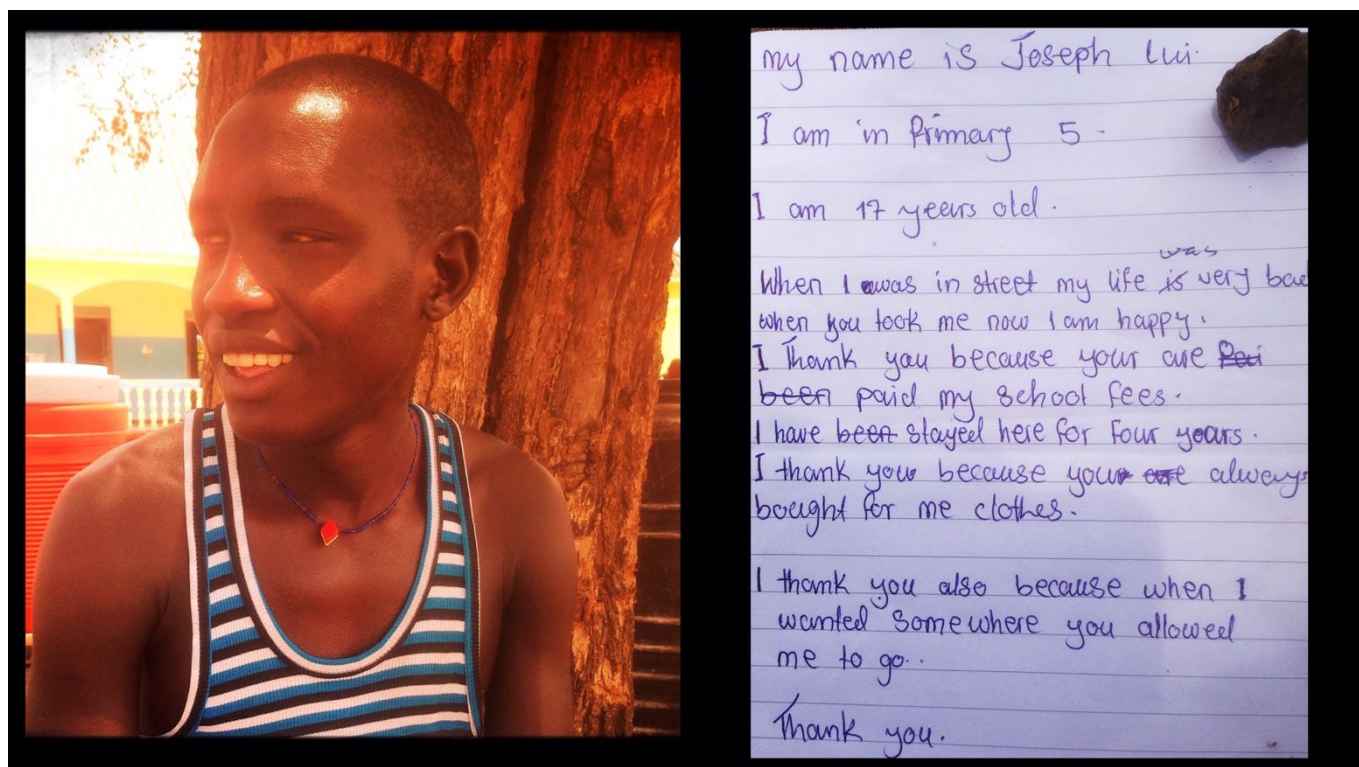 my name is Joseph Lui.
I am in Primary 5.
I am 17 years old.
was
When I was in street my life is very bad
when you took me now I am happy.
I Thank you because your are Pai
been paid my school fees.
I have been stayed here for four years.
I thank you because your are always
bought for me clothes.
I thank you also because when I
wanted somewhere you allowed
me to go..
Thank you.